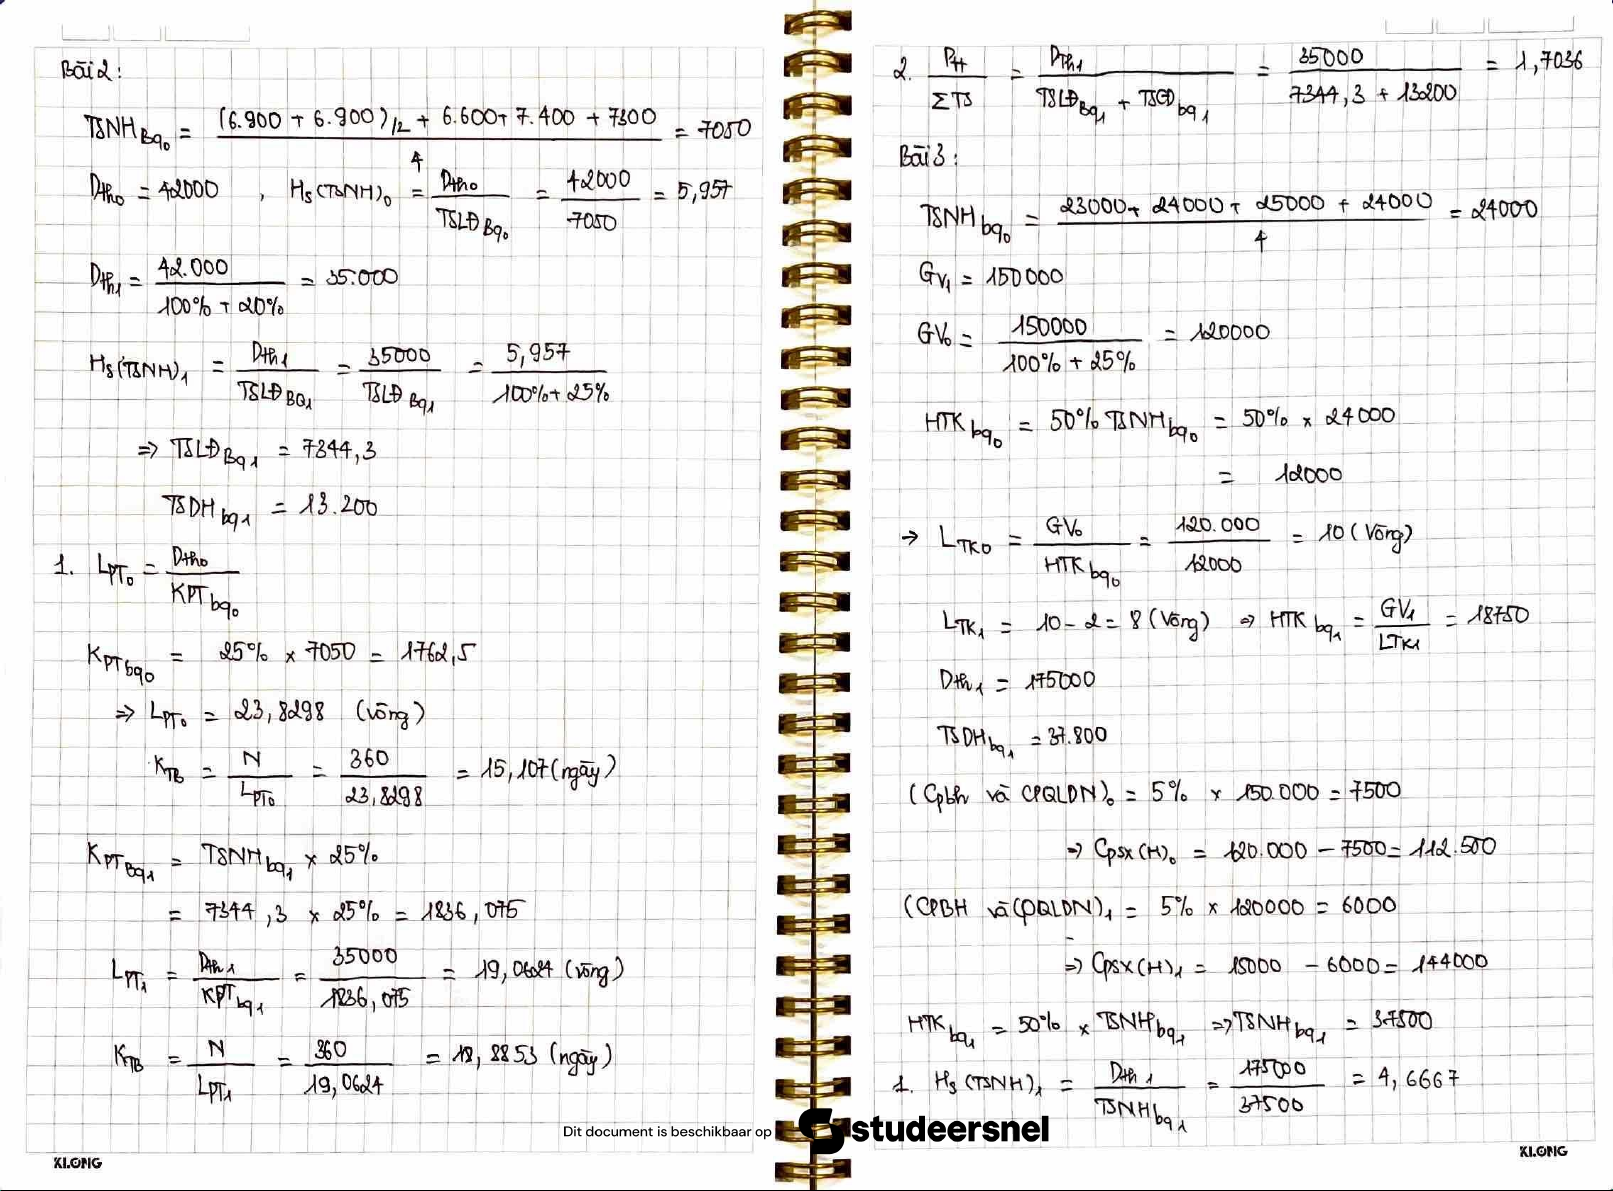 Bài 2 :
TSNH Bq0 = (6.900 + 6.900)/2 + 6.600 + 7.400 + 7300 / 4 = 7050
Dth0 = 42000 , Hs (TSNH)0 = Dth0 / TSLĐ Bq0 = 42000 / 7050 = 5,957
Dth1 = 42.000 / 100% + 20% = 35.000
Hs (TSNH)1 = Dth1 / TSLĐ BQ1 = 35000 / TSLĐ Bq1 = 5,957 / 100% + 25%
=> TSLĐ Bq1 = 7344,3
TSDH bq1 = 13.200
1. LPT0 = Dth0 / KPT bq0
KPT bq0 = 25% x 7050 = 1762,5
=> LPT0 = 23,8298 (vòng)
KTB = N / LPT0 = 360 / 23,8298 = 15,107 (ngày)
KPT Bq1 = TSNH bq1 x 25%
= 7344,3 x 25% = 1836,075
LPT1 = Dth1 / KPT bq1 = 35000 / 1836,075 = 19,0624 (vòng)
KTB = N / LPT1 = 360 / 19,0624 = 18,8853 (ngày)
2. / ΣTS = DTh1 / TSLĐ Bq1 + TSCĐ bq1 = 35000 / 7344,3 + 13200 = 1,7036
Bài 3 :
TSNH bq0 = 23000 + 24000 + 25000 + 24000 / 4 = 24000
GV1 = 150000
GV0 = 150000 / 100% + 25% = 120000
HTK bq0 = 50% TSNH bq0 = 50% x 24000
= 12000
→ LTK0 = GV0 / HTK bq0 = 120.000 / 12000 = 10 (Vòng)
LTK1 = 10 - 2 = 8 (Vòng) => HTK bq1 = GV1 / LTK1 = 18750
Dth1 = 175000
TSDH bq1 = 37.800
(Cpbh và CPQLDN)0 = 5% x 150.000 = 7500
=> Cpsx (H)0 = 120.000 - 7500 = 112.500
(CPBH và CPQLDN)1 = 5% x 120000 = 6000
=> Cpsx (H)1 = 15000 - 6000 = 144000
HTK bq1 = 50% x TSNH bq1 => TSNH bq1 = 37500
1. Hs (TSNH)1 = Dth1 / TSNH bq1 = 175000 / 37500 = 4,6667
Dit document is beschikbaar op studeersnel
KLONG
KLONG